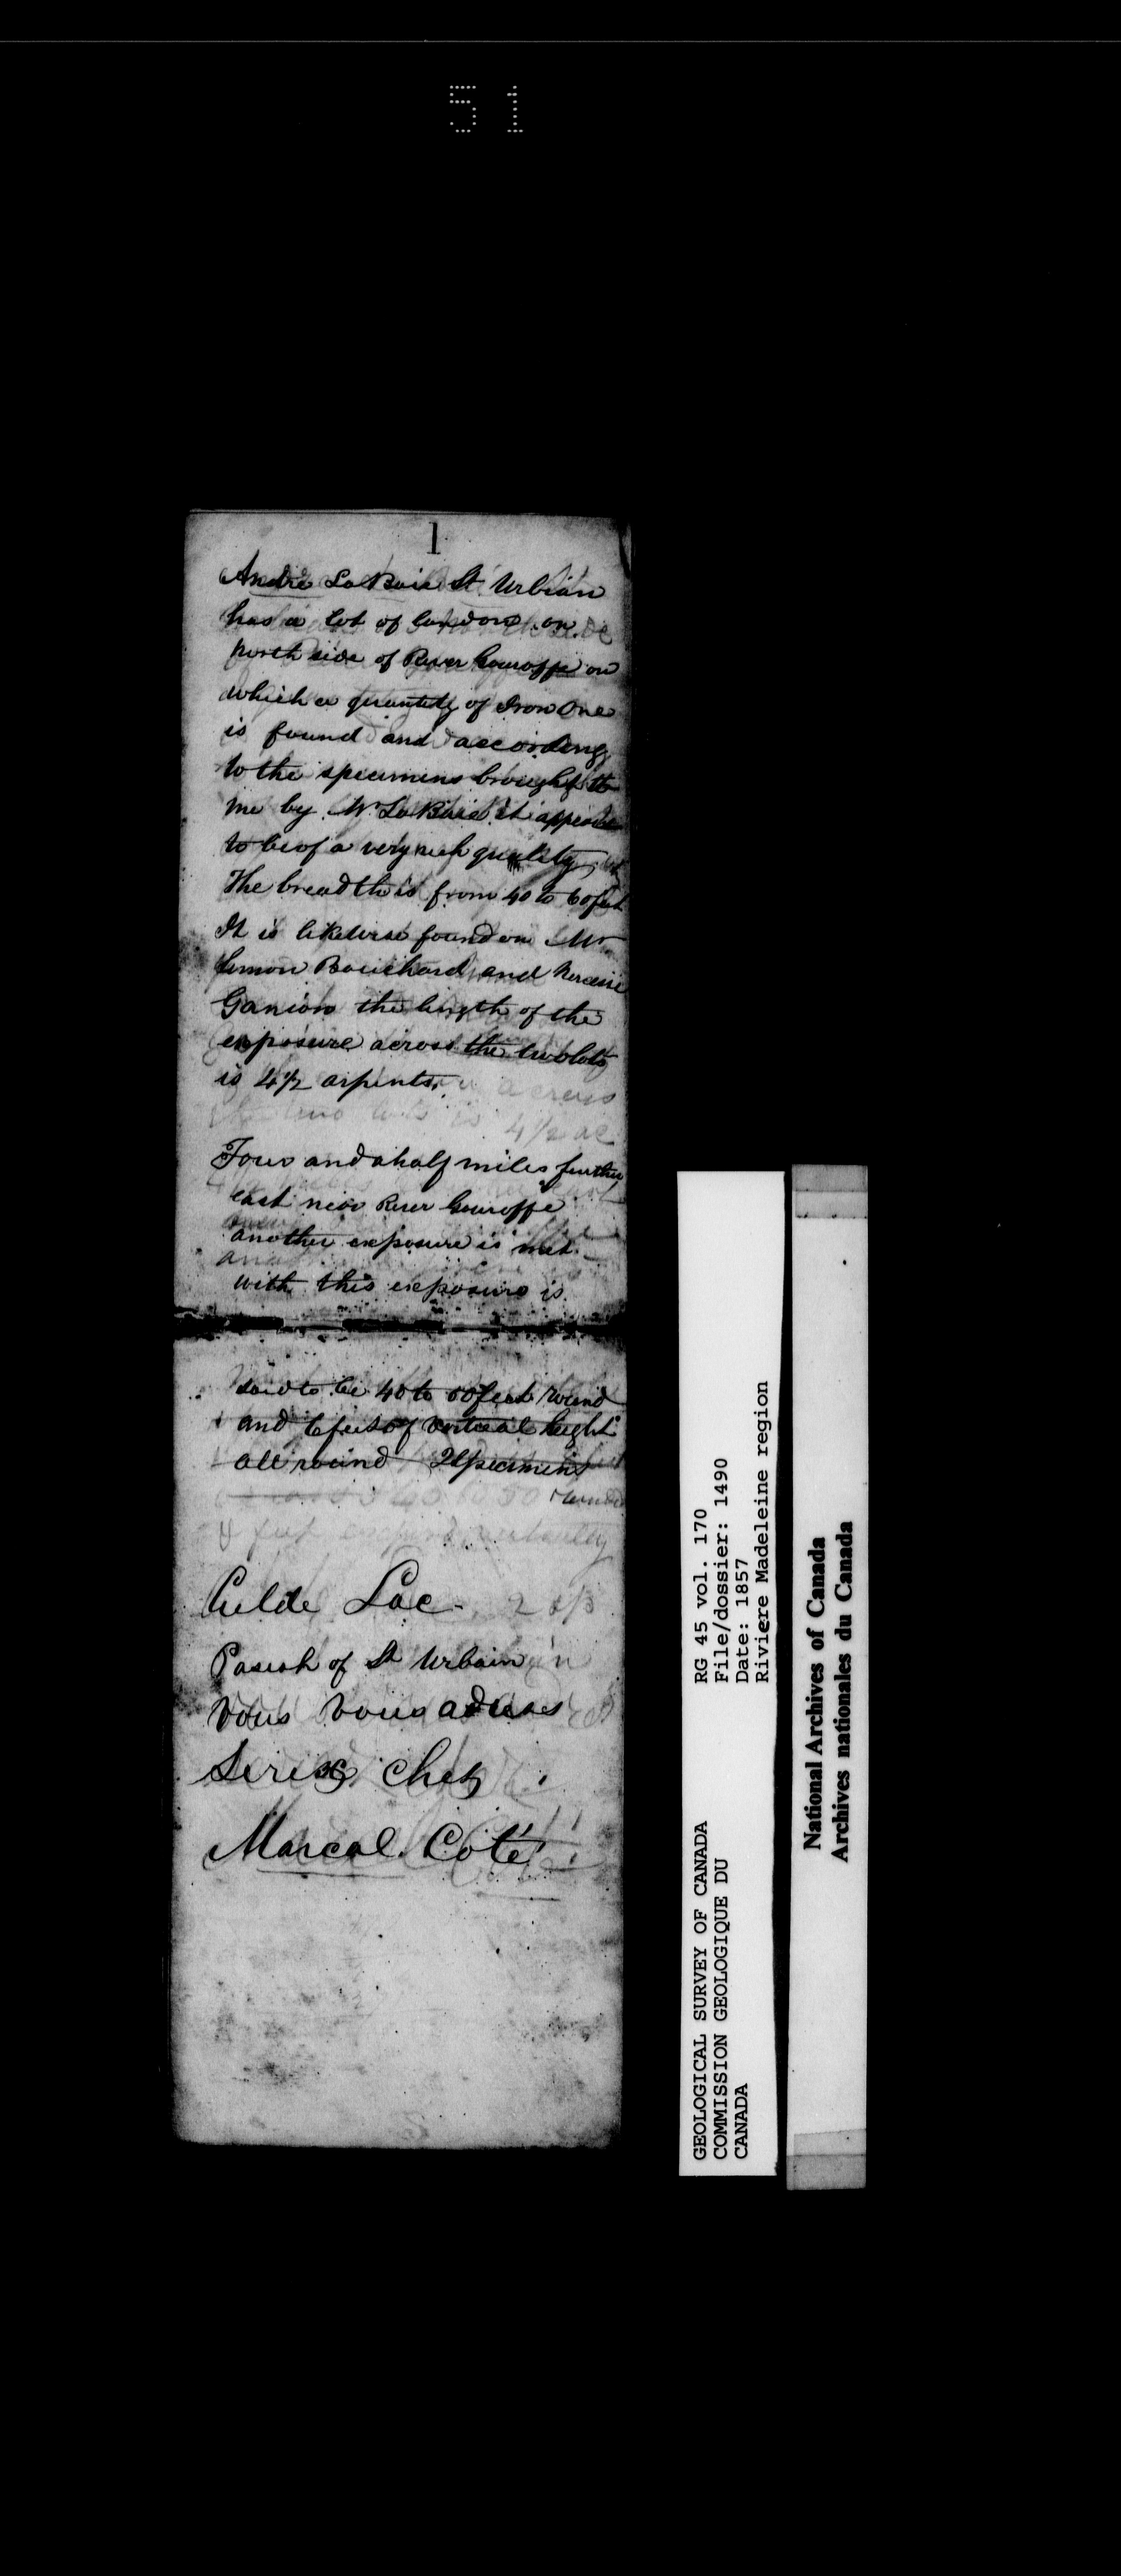 51
1
Andre LaBaie St Urbian
has a lot of land on
north side of River Gouroffe on
which a quantity of Iron One
is found and according
to the specimens brought to
me by Mr LaBaie it appears
to be of a very rich quality
The breadth is from 40 to 60 feet
It is likewise found on Mr
Simon Bouchard and Narcisse
Ganion the length of the
exposure across the two lots
is 4 1/2 arpents.
Four and a half miles further
east near River Gouroffe
another exposure is met
with this exposure is
said to be 40 to 50 feet round
and 6 feet of vertical height
all round 2 Specimens
Lac
Parish of St Urbain
vous vous
chez
Marcal Coté
GEOLOGICAL SURVEY OF CANADA
COMMISSION GEOLOGIQUE DU
CANADA
RG 45 vol. 170
File/dossier: 1490
Date: 1857
Riviere Madeleine region
National Archives of Canada
Archives nationales du Canada